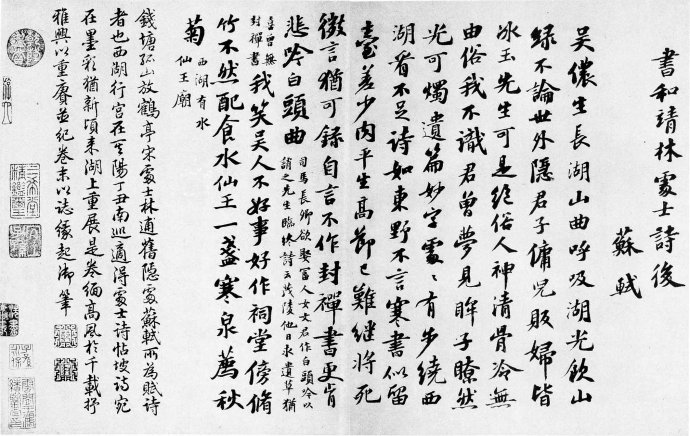 書和靖林處士詩後
蘇軾
吳儂生長湖山曲呼吸湖光飲山
綠不論世外隱君子傭兒販婦皆
冰玉先生可是絕俗人神清骨冷無
由俗我不識君曾夢見眸子瞭然
光可燭遺篇妙字處〻有步繞西
湖看不足詩如東野不言寒書似留
臺差少肉平生高節已難繼將死
微言猶可錄自言不作封禪書更肯
悲吟白頭曲
司馬長卿欲娶富人女文君作白頭吟以
誚之先生臨終詩云茂陵他日求遺草猶
喜曾無
封禪書
我笑吳人不好事好作祠堂傍脩
竹不然配食水仙王一盞寒泉薦秋
菊
西湖有水
仙王廟
錢塘孤山放鶴亭宋處士林逋舊隱處蘇軾所為賦詩
者也西湖行宮在其陽丁丑南巡適得處士詩帖坡詩宛
在墨彩猶新頃来湖上重展是卷緬高風於千載抒
雅興以重賡並紀卷末以誌緣起御筆
三希堂
精鑑璽